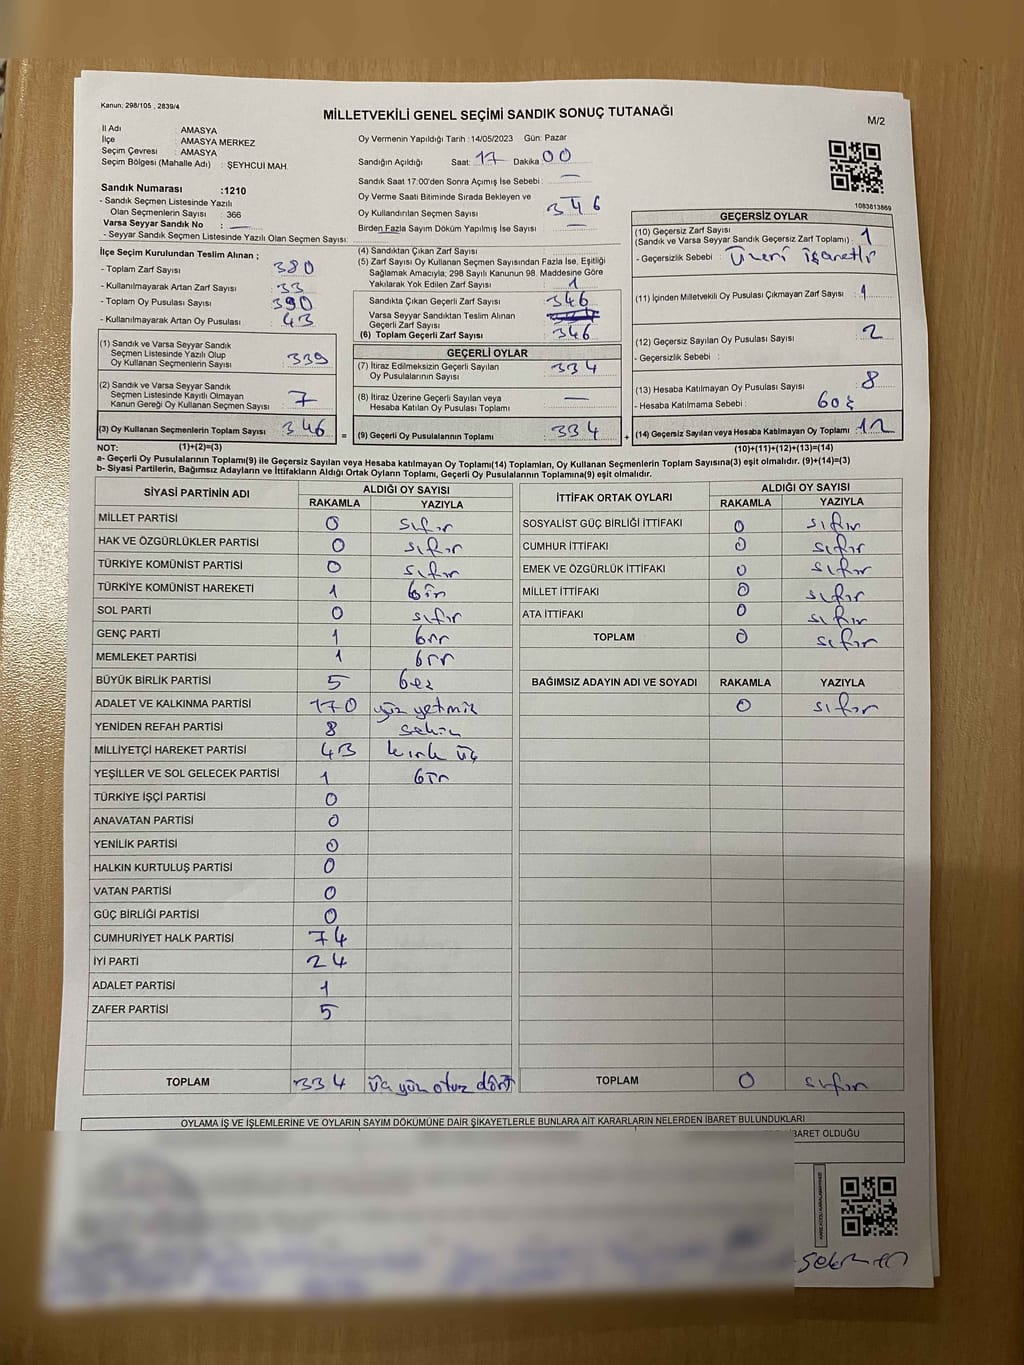 Kanun: 298/105 , 2839/4
MİLLETVEKİLİ GENEL SEÇİMİ SANDIK SONUÇ TUTANAĞI
M/2
İl Adı : AMASYA
İlçe : AMASYA MERKEZ
Seçim Çevresi : AMASYA
Seçim Bölgesi (Mahalle Adı) : ŞEYHCUİ MAH.
Sandık Numarası :1210
- Sandık Seçmen Listesinde Yazılı
Olan Seçmenlerin Sayısı : 366
Varsa Seyyar Sandık No : —
- Seyyar Sandık Seçmen Listesinde Yazılı Olan Seçmen Sayısı:
Oy Vermenin Yapıldığı Tarih : 14/05/2023 Gün: Pazar
Sandığın Açıldığı Saat: 17 Dakika 00
Sandık Saat 17:00'den Sonra Açımış İse Sebebi : —
Oy Verme Saati Bitiminde Sırada Bekleyen ve
Oy Kullandırılan Seçmen Sayısı 346
Birden Fazla Sayım Döküm Yapılmış İse Sayısı —
1083813869
İlçe Seçim Kurulundan Teslim Alınan ;
- Toplam Zarf Sayısı 380
- Kullanılmayarak Artan Zarf Sayısı : 33
- Toplam Oy Pusulası Sayısı 390
- Kullanılmayarak Artan Oy Pusulası : 43
(1) Sandık ve Varsa Seyyar Sandık
Seçmen Listesinde Yazılı Olup
Oy Kullanan Seçmenlerin Sayısı 339
(2) Sandık ve Varsa Seyyar Sandık
Seçmen Listesinde Kayıtlı Olmayan
Kanun Gereği Oy Kullanan Seçmen Sayısı 7
(3) Oy Kullanan Seçmenlerin Toplam Sayısı 346
(4) Sandıktan Çıkan Zarf Sayısı
(5) Zarf Sayısı Oy Kullanan Seçmen Sayısından Fazla İse, Eşitliği
Sağlamak Amacıyla; 298 Sayılı Kanunun 98. Maddesine Göre
Yakılarak Yok Edilen Zarf Sayısı : 1
Sandıkta Çıkan Geçerli Zarf Sayısı 346
Varsa Seyyar Sandıktan Teslim Alınan
Geçerli Zarf Sayısı
(6) Toplam Geçerli Zarf Sayısı 346
GEÇERLİ OYLAR
(7) İtiraz Edilmeksizin Geçerli Sayılan
Oy Pusulalarının Sayısı 334
(8) İtiraz Üzerine Geçerli Sayılan veya
Hesaba Katılan Oy Pusulası Toplamı —
= (9) Geçerli Oy Pusulalarının Toplamı 334 +
GEÇERSİZ OYLAR
(10) Geçersiz Zarf Sayısı
(Sandık ve Varsa Seyyar Sandık Geçersiz Zarf Toplamı) 1
- Geçersizlik Sebebi : üzeri işaretli
(11) İçinden Milletvekili Oy Pusulası Çıkmayan Zarf Sayısı 1
(12) Geçersiz Sayılan Oy Pusulası Sayısı 2
- Geçersizlik Sebebi :
(13) Hesaba Katılmayan Oy Pusulası Sayısı 8
- Hesaba Katılmama Sebebi : boş
(14) Geçersiz Sayılan veya Hesaba Katılmayan Oy Toplamı 12
NOT: (1)+(2)=(3) (10)+(11)+(12)+(13)=(14)
a- Geçerli Oy Pusulalarının Toplamı(9) ile Geçersiz Sayılan veya Hesaba katılmayan Oy Toplamı(14) Toplamları, Oy Kullanan Seçmenlerin Toplam Sayısına(3) eşit olmalıdır. (9)+(14)=(3)
b- Siyasi Partilerin, Bağımsız Adayların ve İttifakların Aldığı Oyların Toplamı, Geçerli Oy Pusulalarının Toplamına(9) eşit olmalıdır.
SİYASİ PARTİNİN ADI ALDIĞI OY SAYISI
RAKAMLA YAZIYLA
MİLLET PARTİSİ 0 sıfır
HAK VE ÖZGÜRLÜKLER PARTİSİ 0 sıfır
TÜRKİYE KOMÜNİST PARTİSİ 0 sıfır
TÜRKİYE KOMÜNİST HAREKETİ 1 bir
SOL PARTİ 0 sıfır
GENÇ PARTİ 1 bir
MEMLEKET PARTİSİ 1 bir
BÜYÜK BİRLİK PARTİSİ 5 beş
ADALET VE KALKINMA PARTİSİ 170 yüz yetmiş
YENİDEN REFAH PARTİSİ 8 sekiz
MİLLİYETÇİ HAREKET PARTİSİ 43 kırk üç
YEŞİLLER VE SOL GELECEK PARTİSİ 1 bir
TÜRKİYE İŞÇİ PARTİSİ 0
ANAVATAN PARTİSİ 0
YENİLİK PARTİSİ 0
HALKIN KURTULUŞ PARTİSİ 0
VATAN PARTİSİ 0
GÜÇ BİRLİĞİ PARTİSİ 0
CUMHURİYET HALK PARTİSİ 74
İYİ PARTİ 24
ADALET PARTİSİ 1
ZAFER PARTİSİ 5
TOPLAM 334 üç yüz otuz dört
İTTİFAK ORTAK OYLARI ALDIĞI OY SAYISI
RAKAMLA YAZIYLA
SOSYALİST GÜÇ BİRLİĞİ İTTİFAKI 0 sıfır
CUMHUR İTTİFAKI 0 sıfır
EMEK VE ÖZGÜRLÜK İTTİFAKI 0 sıfır
MİLLET İTTİFAKI 0 sıfır
ATA İTTİFAKI 0 sıfır
TOPLAM 0 sıfır
BAĞIMSIZ ADAYIN ADI VE SOYADI RAKAMLA YAZIYLA
0 sıfır
TOPLAM 0 sıfır
OYLAMA İŞ VE İŞLEMLERİNE VE OYLARIN SAYIM DÖKÜMÜNE DAİR ŞİKAYETLERLE BUNLARA AİT KARARLARIN NELERDEN İBARET BULUNDUKLARI
İBARET OLDUĞU